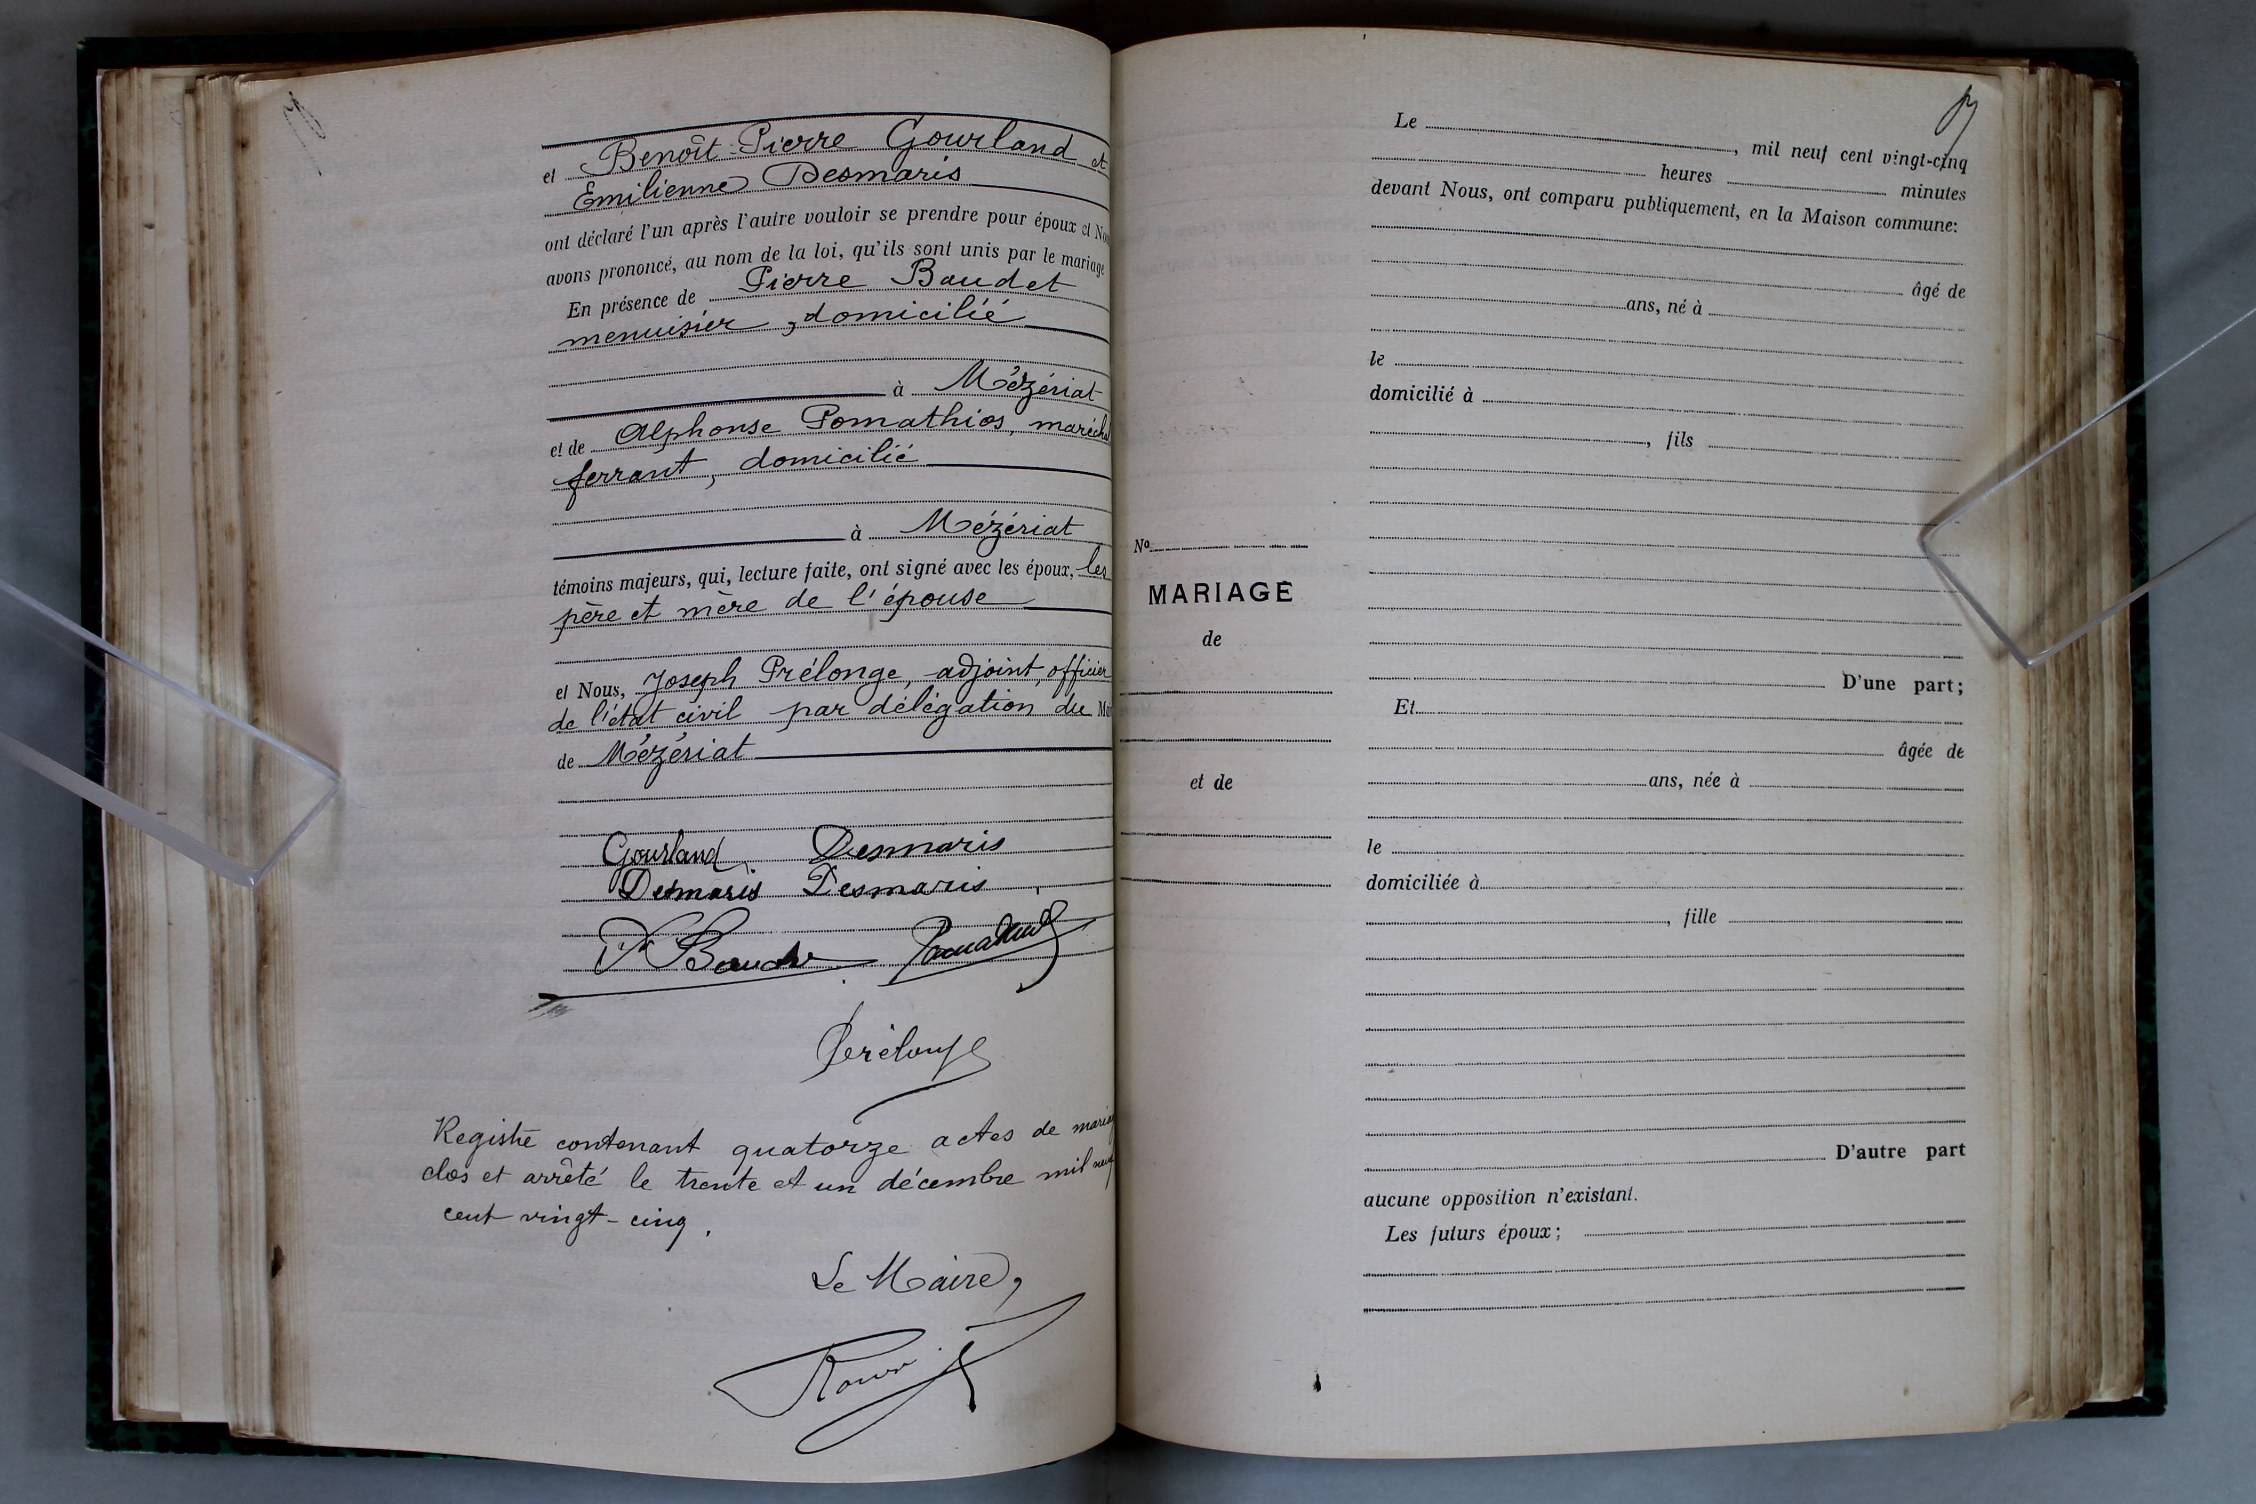 et Benoît-Pierre Gourland et
Emilienne Desmaris
ont déclaré l'un après l'autre vouloir se prendre pour époux et No
avons prononcé, au nom de la loi, qu'ils sont unis par le mariage
En présence de Pierre Baudet
menuisier, domicilié
à Mézériat
et de Alphonse Pomathios, marécha
ferrant, domicilié
à Mézériat
témoins majeurs, qui, lecture faite, ont signé avec les époux, les
père et mère de l'épouse
et Nous, Joseph Prélonge, adjoint, officier
de l'état civil par délégation du Ma
de Mézériat
Gourland Desmaris
Desmaris Desmaris
Registre contenant quatorze actes de mariag
clos et arrêté le trente et un décembre mil neuf
cent vingt-cinq.
Le Maire,
No
MARIAGE
de
et de
Le , mil neuf cent vingt-cinq
heures minutes
devant Nous, ont comparu publiquement, en la Maison commune:
âgé de
ans, né à
le
domicilié à
, fils
D'une part;
Et
âgée de
ans, née à
le
domiciliée à
, fille
D'autre part
aucune opposition n'existant.
Les futurs époux;